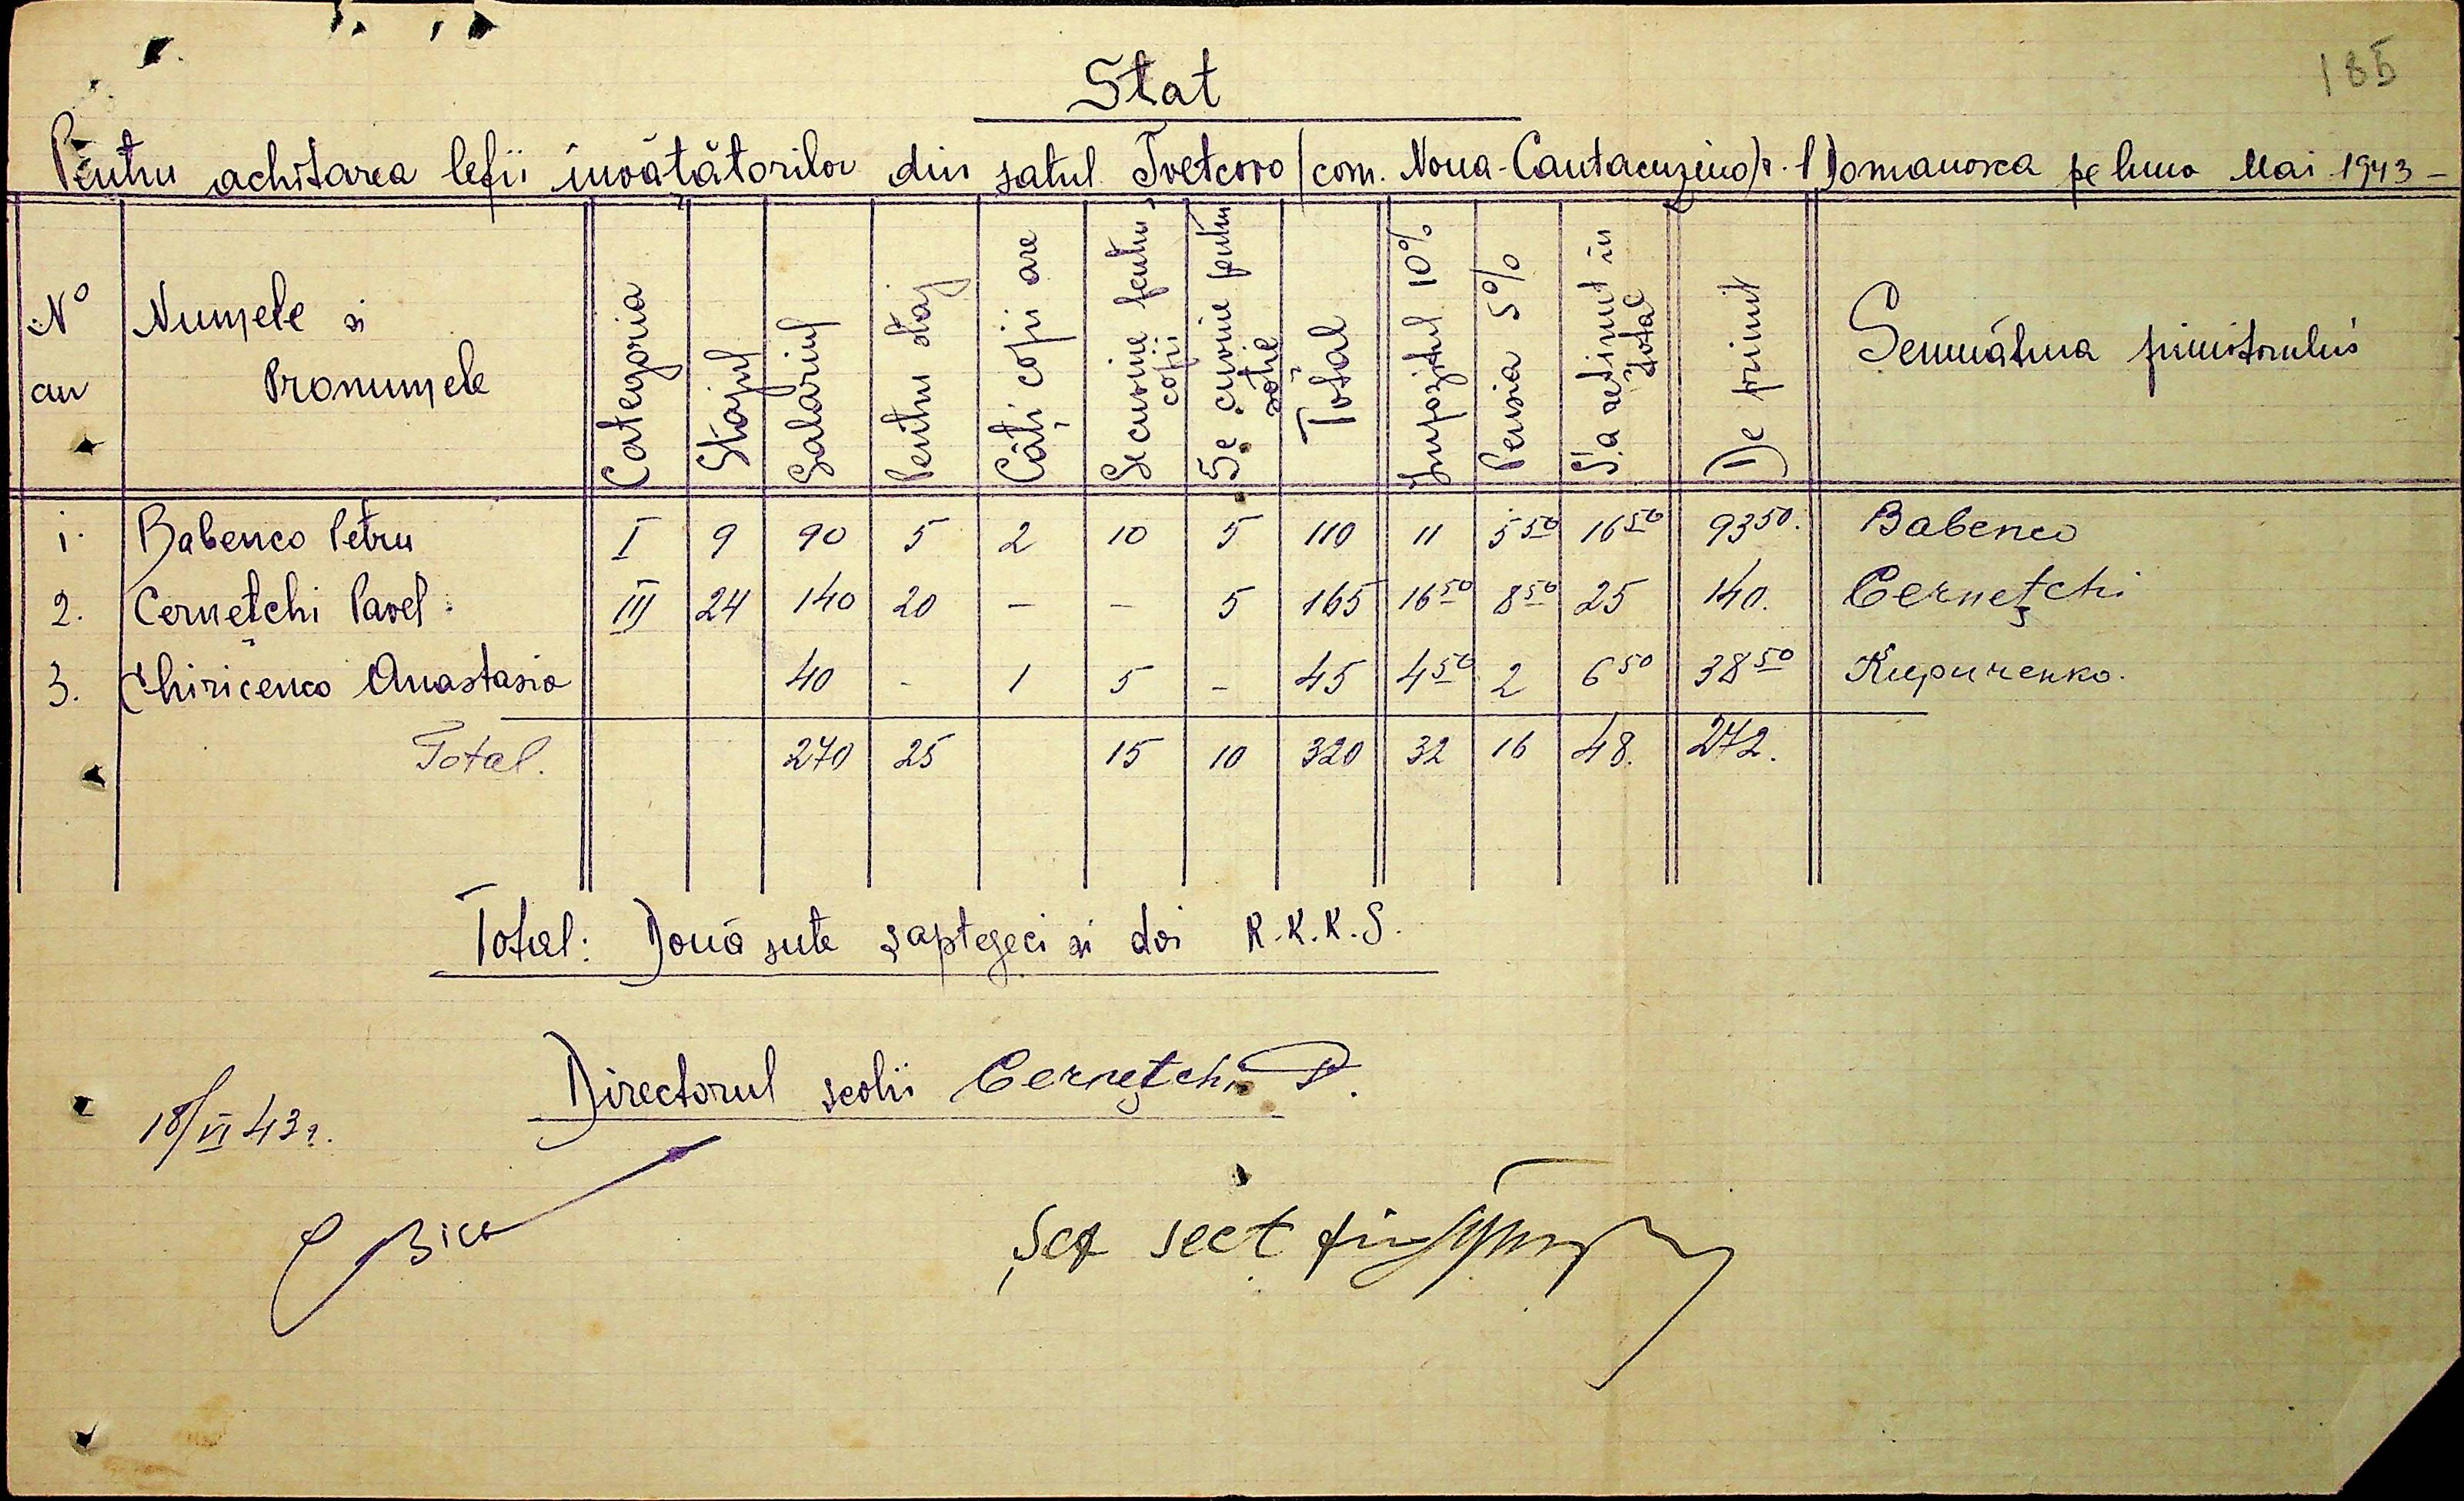 185
Stat
Pentru achitarea lefii învățătorilor din satul Tvetcovo (com. Noua-Cantacuzino) r. Domanovca pe luna Mai 1943 –
Nº cu | Numele si Pronumele | Categoria | Stajul | Salariul | Pentru staj | Câți copii are | Se cuvine pentru copii | Se cuvine pentru soție | Total | Impozitul 10% | Pensia 5% | S'a reținut în total | De primit | Semnătura primitorului
1. | Babenco Petru | I | 9 | 90 | 5 | 2 | 10 | 5 | 110 | 11 | 5 50 | 16 50 | 93 50. | Babenco
2. | Cernețchi Pavel | III | 24 | 140 | 20 | – | – | 5 | 165 | 16 50 | 8 50 | 25 | 140. | Cernețchi
3. | Chiricenco Anastasia | 40 | - | 1 | 5 | – | 45 | 4 50 | 2 | 6 50 | 38 50 | Кириченко.
Total. | 270 | 25 | 15 | 10 | 320 | 32 | 16 | 48. | 272.
Total: Două sute șaptezeci si doi R.K.K.S.
Directorul scolii Cernețchi P.
18/VI 43 г.
Șef sect fin